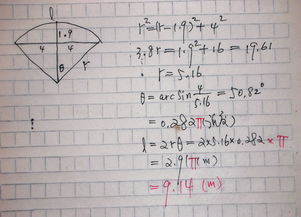 l
1.9
4 4
θ r
r²=(r-1.9)²+4²
3.8r=1.9²+16=19.61
∴ r=5.16
θ=arcsin 4/5.16 = 50.82°
=0.282π
l=2rθ=2×5.16×0.282×π
=2.91π(m)
=9.14 (m)